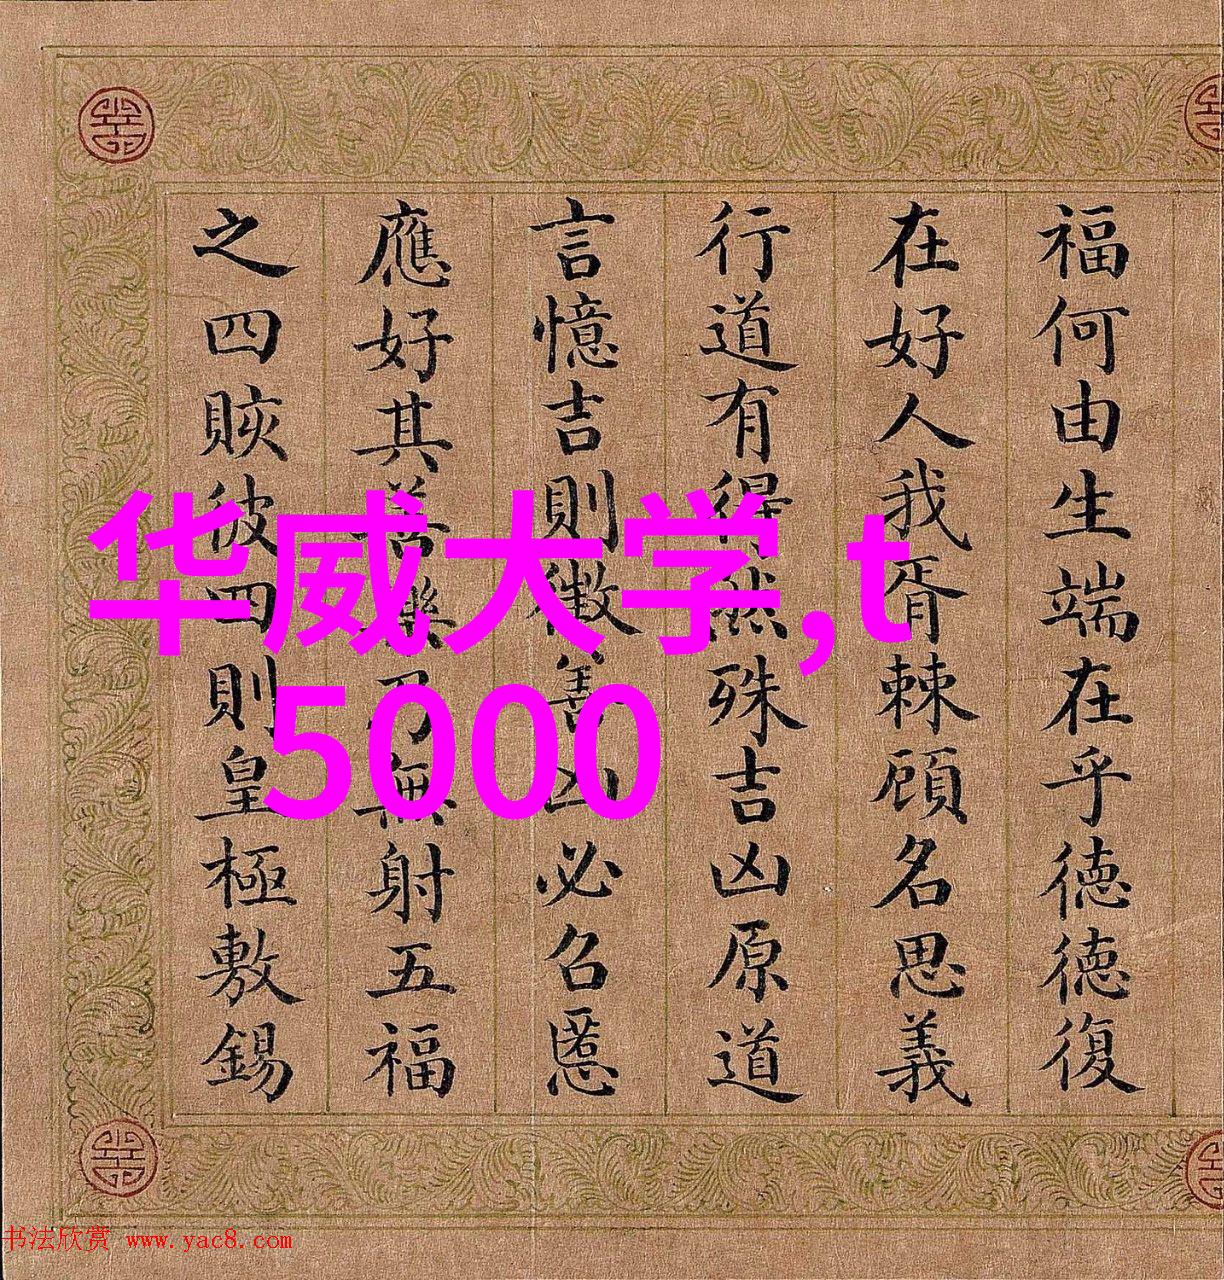 福何由生端在乎德德復
在好人我胥棘顧名思義
行道有得然殊吉凶原道
言憶吉則徵善凶必召慝
應好其善樂乃無射五福
之四賅彼四則皇極敷錫
华威大学,t
5000
书法欣赏 www.yac8.com